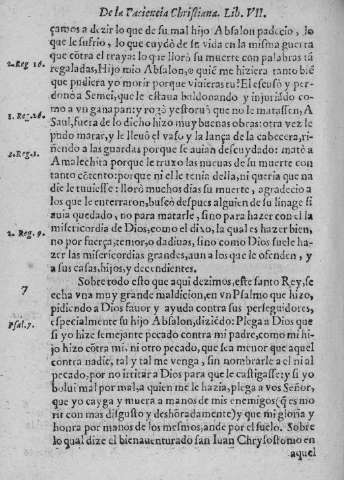 De la Paciencia Christiana. Lib. VII.
çamos a dezir lo que de su mal hijo Absalon padecio, lo
que le sufrio, lo que cuydò de se vida en la misma guerra
que cõtra el traya: lo que llorò su muerte con palabras tã
2. Reg. 16.
regaladas, Hijo mio Absalon, o quiẽ me hiziera tanto biẽ
que pudiera yo morir porque vinieras tu? El escusò y per-
donò a Semei, que le estaua baldonando y injuriãdo co-
mo a vn ganapan: y rogò y estoruò que no le matassen, A
1. Reg. 26.
Saul, fuera de lo dicho hizo muy buenas obras: otra vez le
pudo matar, y le lleuò el vaso y la lança de la cabecera, ri-
ñendo a las guardas porque se auian descuydado: matò a
2. Reg. 1.
Amalechita porque le truxo las nueuas de su muerte con
tanto cõtento: porque ni el le tenia della, ni queria que na
die le tuuiesse: llorò muchos dias su muerte, agradecio a
los que le enterraron, buscò despues alguien de su linage si
auia quedado, no para matarle, sino para hazer con el la
2. Reg. 9.
misericordia de Dios, como el dixo, la qual es hazer bien,
no por fuerça, temor, o dadiuas, sino como Dios suele ha-
zer las misericordias grandes, aun a los que le ofenden, y
a sus casas, hijos, y decendientes.
7
Sobre todo esto que aqui dezimos, este santo Rey, se
echa vna muy grande maldicion, en vn Psalmo que hizo,
pidiendo a Dios fauor y ayuda contra sus perseguidores,
Psal. 7.
especialmente su hijo Absalon, diziẽdo: Plega a Dios que
si yo hize semejante pecado contra mi padre, como mi hi-
jo hizo cõtra mi, ni otro pecado, que sea menor que aquel
contra nadie, tal y tal me venga, sin nombrarle a el ni al
pecado, por no irritar a Dios para que le castigasse: y si yo
boluí mal por mal, a quien me le hazia, plega a vos Señor,
que yo cayga y muera a manos de mis enemigos (q̃ es mo
rir con mas disgusto y deshõradamente) y que mi gloria y
honra por manos de los mesmos, ande por el suelo. Sobre
lo qual dize el bienauenturado san Iuan Chrysostomo en
aquel